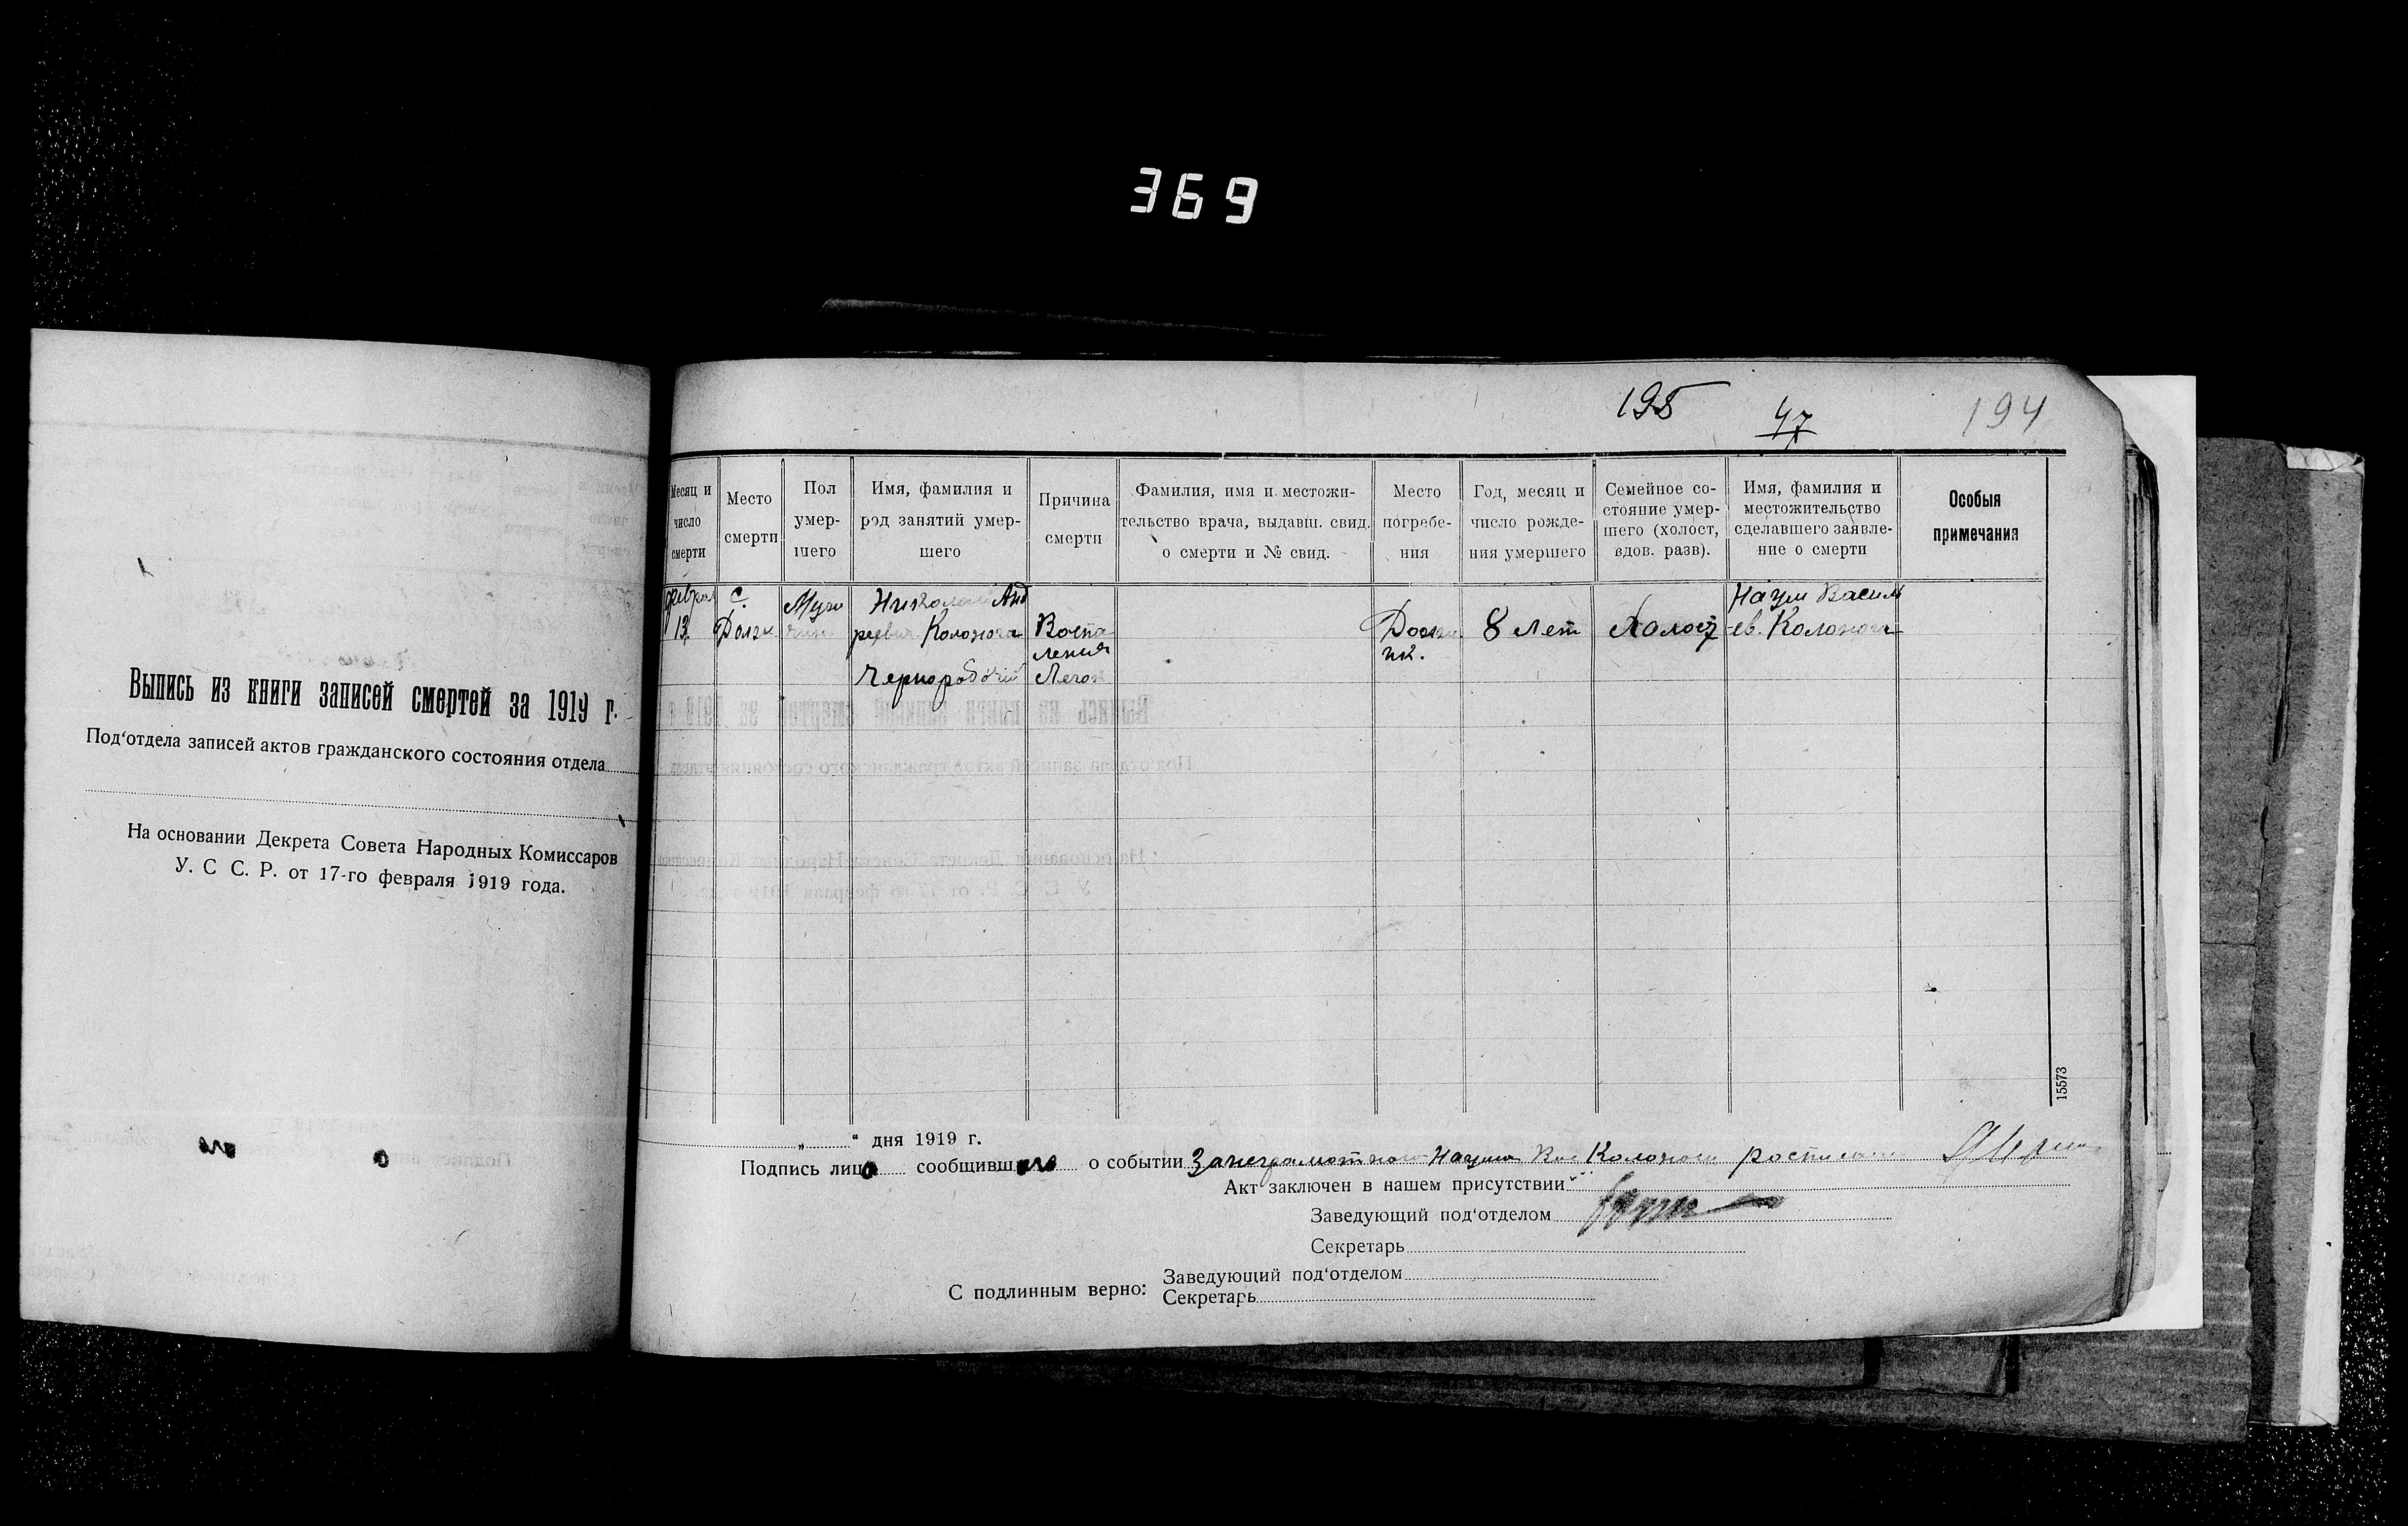 369
195 47 194
Выпись из книги записей смертей за 1919 г.
Под‘отдела записей актов гражданского состояния отдела
На основании Декрета Совета Народных Комиссаров
У. С С. Р. от 17-го февраля 1919 года.
Месяц и число смерти
Место смерти
Пол умер-
шего
Имя, фамилия и
род занятий умер-
шего
Причина
смерти
Фамилия, имя и местожи-
тельство врача, выдавш. свид.
о смерти и № свид.
Место
погребе-
ния
Год, месяц и
число рожде-
ния умершего
Семейное со-
стояние умер-
шего (холост,
вдов. разв).
Имя, фамилия и
местожительство
сделавшего заявле-
ние о смерти
Особыя
примечания
13
с.
Николай Анд
реевич Колонога
Чернорабочий
Воспа
ления
Легок
8 лет
Холост
Наум Васил
ев. Колонога
15573
„ “ дня 1919 г.
Подпись лица сообщившего о событии Занеграмотного Наума Вас Колоноги
Акт заключен в нашем присутствии
Заведующий под‘отделом
Секретарь
С подлинным верно: Заведующий под‘отделом
Секретарь